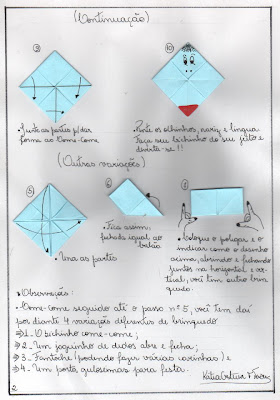 (Continuação)
9
10
• Junte as partes p/ dar
forma ao Come-Come
• Pinte os olhinhos, nariz e língua
Faça seu bichinho do seu jeito e
divirta-se!!
(Outras variações)
5
6
7
• Una as partes
• Fica assim,
fechado igual ao
balão
• Coloque o polegar e o
indicar como o desenho
acima, abrindo e fechando
juntos na horizontal e ver-
tical, você tem outro brin-
quedo.
• Observações:
Come-come seguido até o passo nº 5, você tem daí
por diante 4 variações diferentes de brinquedo
1- O bichinho come-come;
2- Um joguinho de dedos abre e fecha;
3- Fantoche (podendo fazer várias carinhas) e
4- Um porta guloseimas para festa.
2
Kátia Cristina